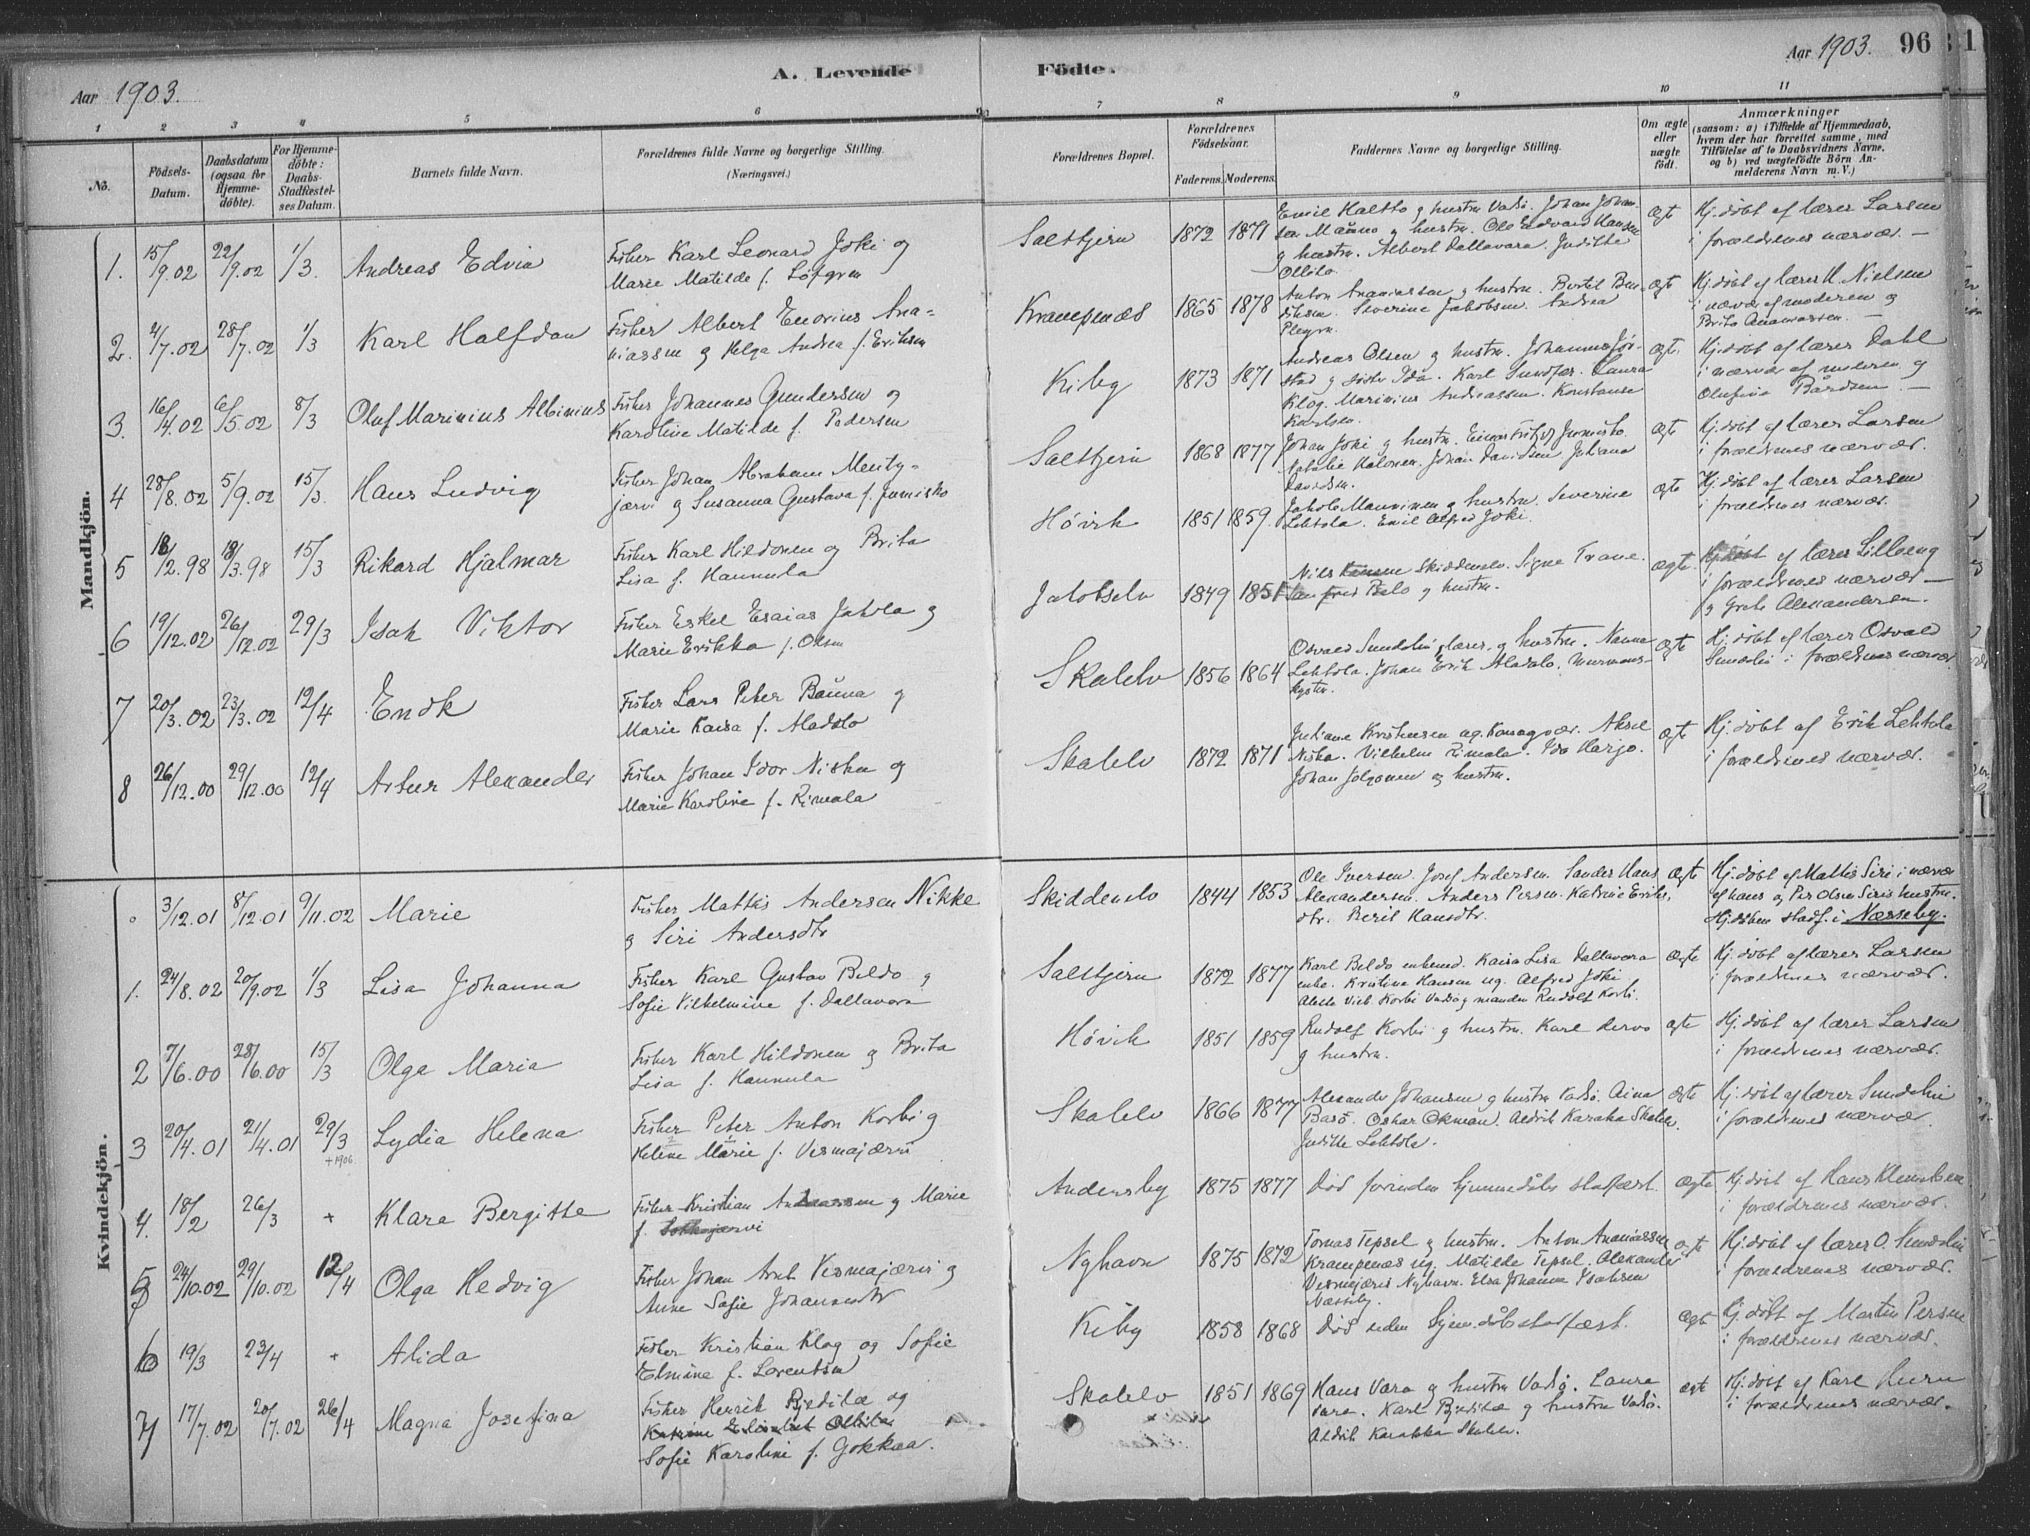 Aar 1903.
A. Levende Födte.
Aar 1903. 96
1 2 3 4 5 6 7 8 9 10 11
No.
Födsels-Datum.
Daabsdatum (ogsaa for Hjemme-döbte).
For Hjemme-döbte: Daabs-Stadfæstel-ses Datum.
Barnets fulde Navn.
Forældrenes fulde Navne og borgerlige Stilling.
(Næringsvei.)
Forældrenes Bopæl.
Forældrenes Födselsaar.
Faderens. Moderens.
Faddernes Navne og borgerlige Stilling.
Om ægte eller uægte födt.
Anmærkninger
(saasom: a) i Tilfælde af Hjemmedaab,
hvem der har forrettet samme, med
Tilföielse af to Daabsvidners Navne,
og b) ved uægtefödte Börn An-
melderens Navn m. V.)
Mandkjön.
1. 15/9.02 22/9.02 1/3. Andreas Edvin
Fisker Karl Leonard Joki og
Marie Matilde f. Løfgren
Saltbjern 1872 1871
Emil Haltto og hustru Vadsø. Johan Johan-
sen Manno og hustru. Ole Edvard Hansen
og hustru. Albert Dallavara. Judithe
Ollila.
ægte
Hj. døbt af lærer Larsen
i forældrenes nærvær. —
2. 4/7.02 28/7.02 1/3 Karl Halfdan
Fisker Albert Enorius Ana-
niassen og Helga Andrea f. Eriksen
Krampenæs 1865 1878
Anton Ananiassen og hustru. Bertel Ben-
diksen. Severine Jakobsen. Andrea
ægte
Hj. døbt af lærer N. Nielsen
i nærvær af moderen og
Brita Ananiassen. —
3. 16/4.02 6/5.02 8/3 Oluf Marinius Albinius
Fisker Johannes Gundersen og
Karoline Matilde f. Pedersen
Kiby 1873 1871
Andreas Olsen og hustru. Johannes Jør-
stad og søster Ida. Karl Sundfær. Laura
Klog. Marinius Andreassen. Konstanse
Karlsen.
ægte
Hj. døbt af lærer Dahl
i nærvær af moderen og
Olufine Bårdsen —
4 28/8.02 5/9.02 15/3. Hans Ludvig
Fisker Johan Abraham Menty-
jærvi og Susanna Gustava f. Junisko
Saltbjern 1868 1877
Johan Joki og hustru. Junisko.
Natalie Halonen. Johan Davidsen Juliana
Davidsen.
ægte
Hj. døbt af lærer Larsen
i forældrenes nærvær.
5 18/2.98 18/3.98 15/3 Rikard Hjalmar
Fisker Karl Hildonen og Brita
Lisa f. Hannula
Høvik 1851 1859.
Jakob Manninen og hustru. Severine
Lehtola. Emil Alfred Joki.
ægte
Hj. døbt af lærer Larsen
i forældrenes nærvær.
6 19/12.02 26/12.02 29/3 Isak Viktor
Fisker Eskel Esaias Jakola og
Marie Erikka f. Olsen
Jakobselv 1849 1851
Nils Skiddenelv. Signe Trane.
Palo og hustru.
ægte.
Hj. døbt af lærer Lilleeng
i forældrenes nærvær —
og Grete Alexandersen.
7 20/3.02 23/3.02 12/4 Endk
Fisker Lars Peter Bauna og
Marie Kaisa f. Aladslo
Skalelv 1856 1864
Osvald Sundelin lærer, og hustru. Nanna
Lehtola. Johan Erik Aladalo, Murmans-
kysten.
ægte
Hj. døbt af lærer Osvald
Sundelin i forældrenes nærvær.
8 26/12.00 29/12.00 12/4 Artur Alexander
Fisker Johan Idor Niska og
Marie Karoline f. Rimala
Skalelv 1872 1871
Juliane Kristensen ug. Komagvær. Aksel
Niska. Vilhelm Rimala. Ida Harjo.
Johan Jolgonen og hustru.
ægte
Hj. døbt af Erik Lehtola
i forældrenes nærvær.
Kvindekjön.
° 3/12.01 8/12.01 9/11.02 Marie
Fisker Mattis Andersen Nikke
og Siri Andersdtr
Skiddenelv 1844 1853
Ole Iversen. Josef Andersen. Sander Hans
Alexandersen. Anders Persen. Katrine Eriks-
dtr. Berit Hansdtr.
ægte
Hj. døbt af Mattis Siri i nærvær
af hans og Per Olsen Siris hustru.
Hj. døben stadf. i Næsseby.
1. 24/8.02 20/9.02 1/3 Lisa Johanna
Fisker Karl Gustav Beldo og
Sofie Vilhelmine f. Dallavara
Saltbjern 1872 1877
Karl Beldo enkemd. Kaisa Lisa Dallavara
enke. Kristine Hansen ug. Alfred Joki
Korbi Vadsø og manden Rudolf Korbi.
ægte
Hj. døbt af lærer Larsen
i forældrenes nærvær.
2 7/6.00 28/6.00 15/3 Olga Maria
Fisker Karl Hildonen og Brita
Lisa f. Hannula
Høvik 1851 1859
Rudolf Korbi og hustru. Karl Dervo
og hustru.
ægte
Hj. døbt af lærer Larsen
i forældrenes nærvær.
3 20/4.01 21/4.01 29/3 Lydia Helena
+1906
Fisker Peter Anton Korbi og
Helene Marie f. Vesmajærvi
Skalelv 1866 1877
Alexander Johansen og hustru Vadsø. Aina
Basø. Oskar Okman. Aldrik Karakka Skalelv.
Judithe Lehtola.
ægte
Hj. døbt af lærer Sundelin
i forældrenes nærvær.
4. 18/2 26/3 + Klara Bergitte
Fisker Kristian Andreassen og Marie
f.
Andersby 1875 1877
Død forinden hjemmedåbs stadfæst.
ægte
Hj. døbt af Hans Klemetsen
i forældrenes nærvær.
5 24/10.02 29/10.02 12/4 Olga Hedvig
Fisker Johan Arnt Vesmajærvi og
Anne Sofie Johannesdtr
Nyhavn 1875 1872
Tomas Tepsel og hustru. Anton Ananiassen
Krampenæs ug. Matilde Tepsel. Alexander
Vesmajærvi Nyhavn. Elsa Johanna Isaksen
Næsseby.
ægte
Hj. døbt af lærer O. Sundelin
i forældrenes nærvær.
6 19/3 23/4 + Alida
Fisker Kristian Klog og Sofie
Elmine f. Lorentsen
Kiby 1858 1868
Død uden hjem. dåbsstadfæst.
ægte
Hj. døbt af Martin Persen
i forældrenes nærvær.
7 17/7.02 20/7.02 26/4 Magna Josefina
Fisker Henrik Pjedilæ og
Katrine Elisabet Ollila
Sofie Karoline f. Gokkaa.
Skalelv 1851 1869
Hans Vara og hustru Vadsø. Laura
Vara. Karl Pjetilæ og hustru Vadsø.
Aldrik Karakka Skalelv.
ægte
Hj. døbt af Karl Huru
i forældrenes nærvær.